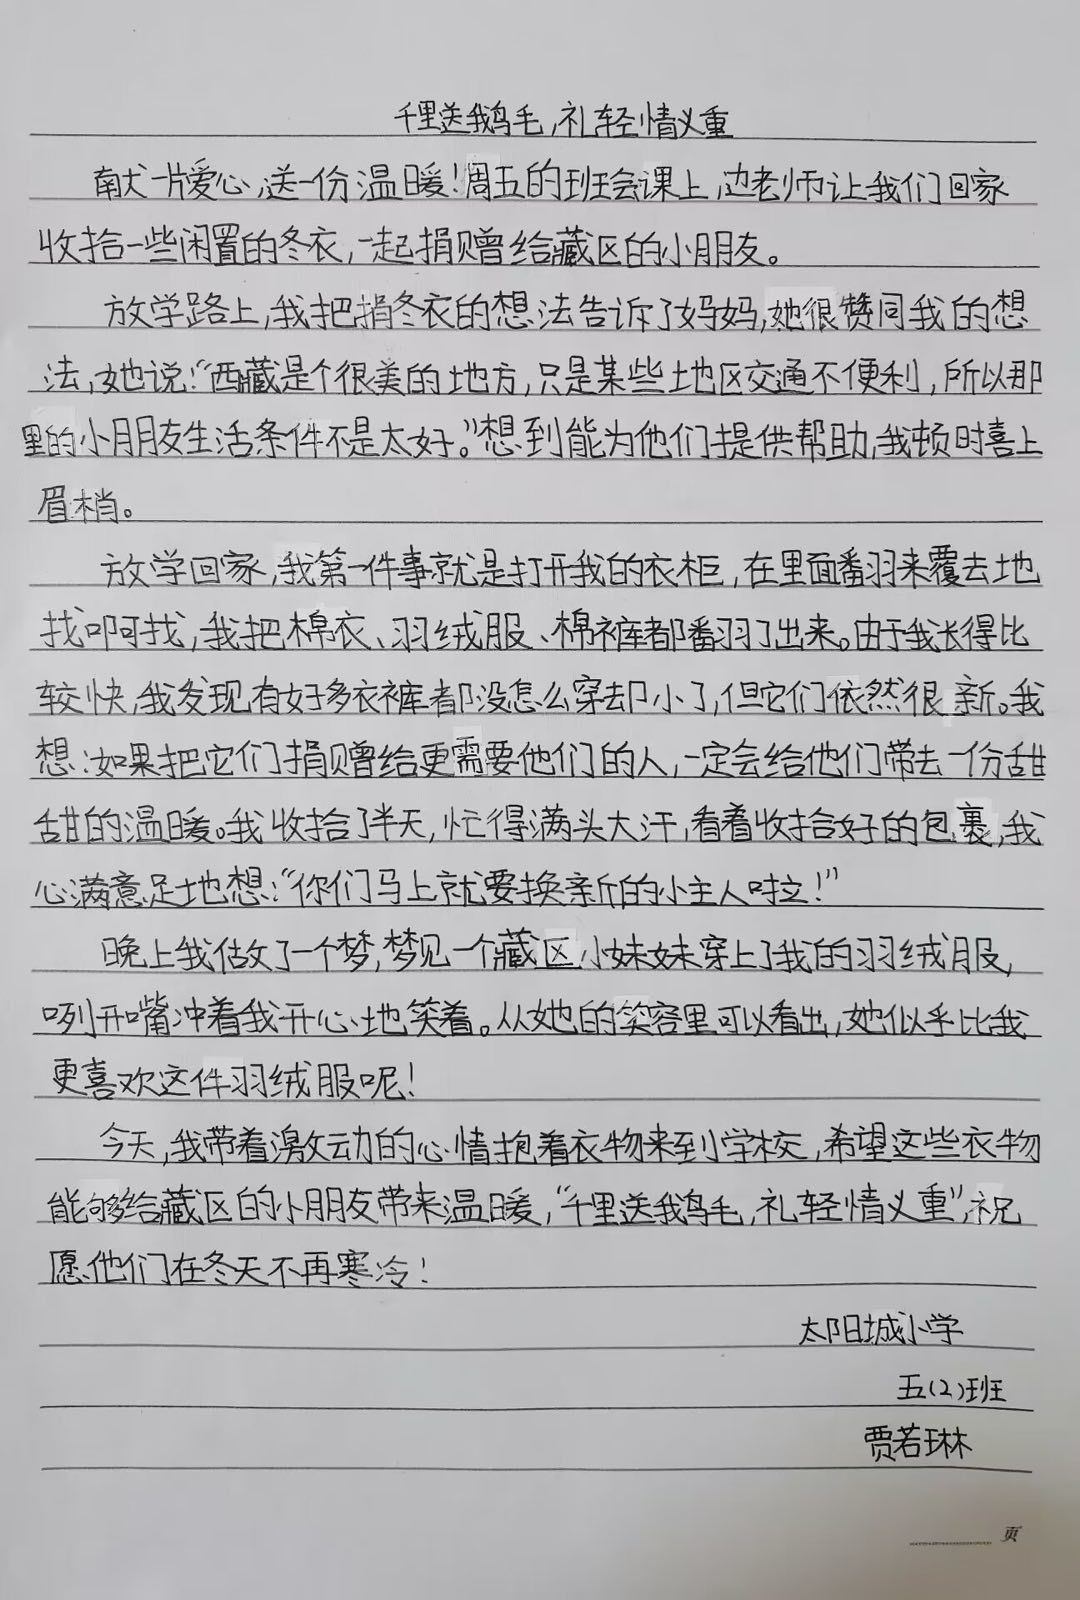 千里送鹅毛,礼轻情义重
献一片爱心,送一份温暖!周五的班会课上,边老师让我们回家
收拾一些闲置的冬衣,一起捐赠给藏区的小朋友。
放学路上,我把捐冬衣的想法告诉了妈妈,她很赞同我的想
法,她说:“西藏是个很美的地方,只是某些地区交通不便利,所以那
里的小朋友生活条件不是太好。”想到能为他们提供帮助,我顿时喜上
眉梢。
放学回家,我第一件事就是打开我的衣柜,在里面翻来覆去地
找啊找,我把棉衣、羽绒服、棉裤都翻了出来。由于我长得比
较快,我发现有好多衣裤都没怎么穿却小了,但它们依然很新。我
想:如果把它们捐赠给更需要他们的人,一定会给他们带去一份甜
甜的温暖。我收拾了半天,忙得满头大汗,看着收拾好的包裹,我
心满意足地想:“你们马上就要换新的小主人啦!”
晚上我做了一个梦,梦见一个藏区小妹妹穿上了我的羽绒服,
咧开嘴冲着我开心地笑着。从她的笑容里可以看出,她似乎比我
更喜欢这件羽绒服呢!
今天,我带着激动的心情抱着衣物来到小学校,希望这些衣物
能够给藏区的小朋友带来温暖,“千里送鹅毛,礼轻情义重”,祝
愿他们在冬天不再寒冷!
太阳城小学
五(2)班
贾若琳
页